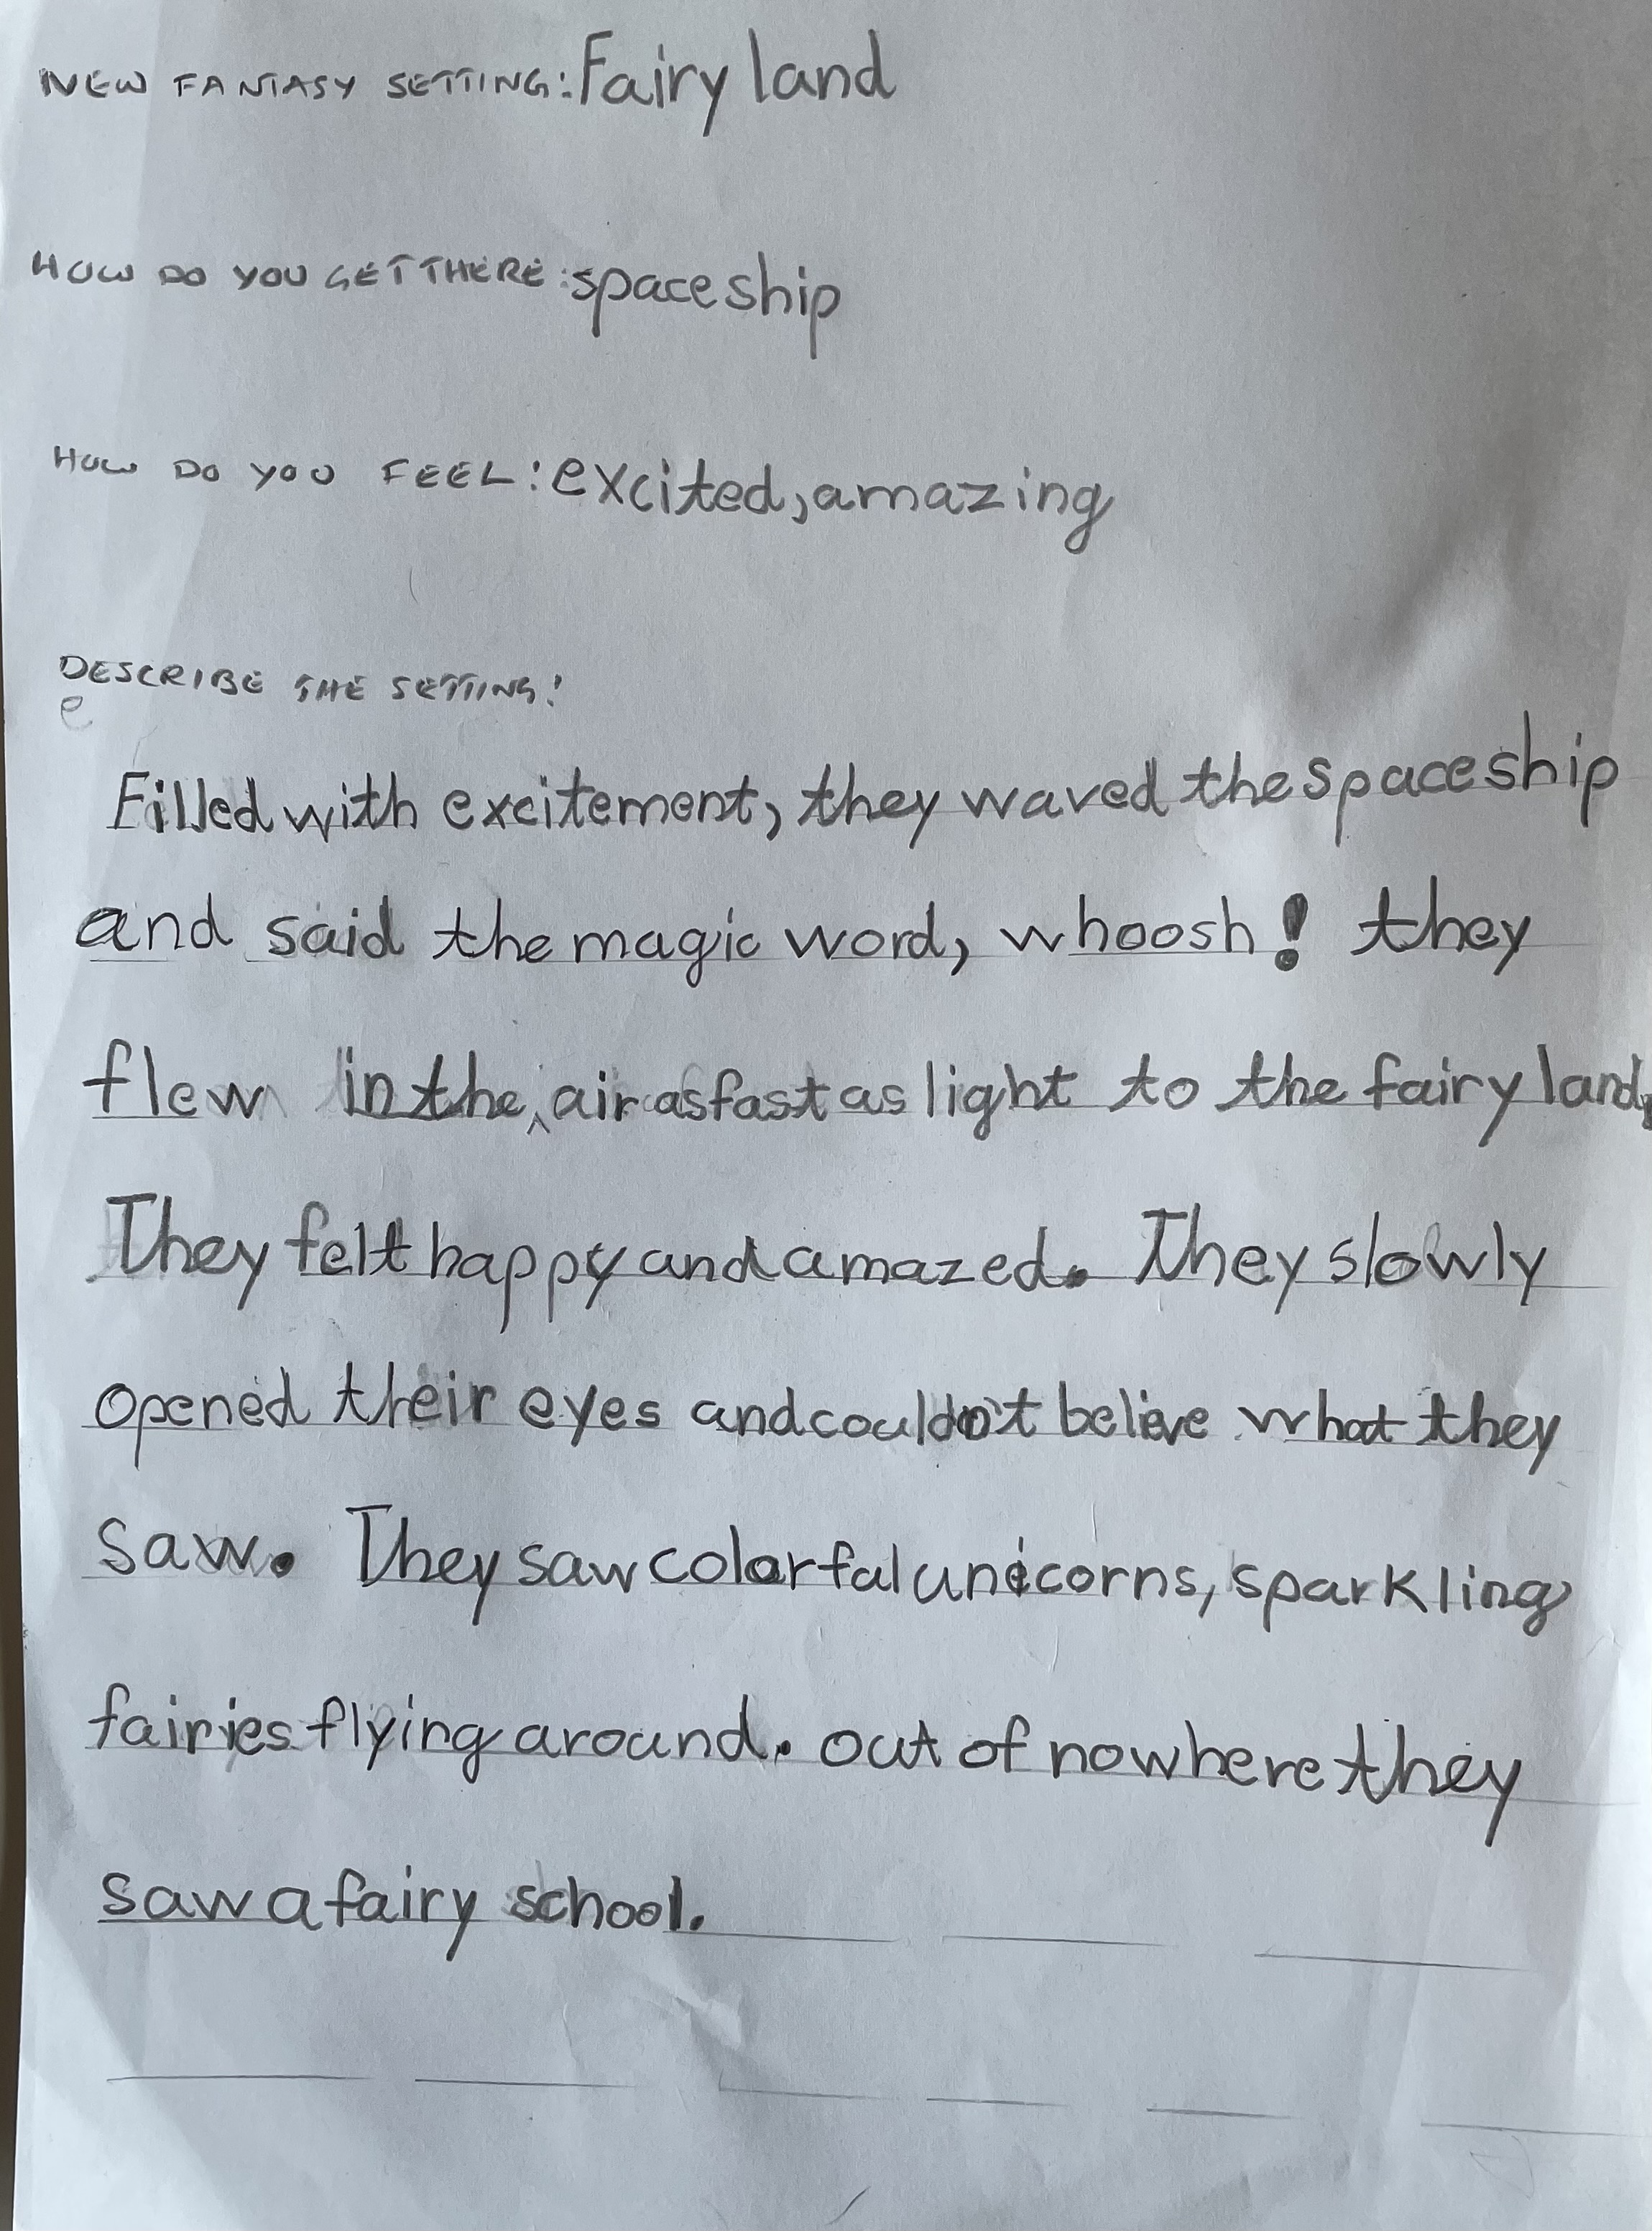 NEW FANTASY SETTING: Fairy land
HOW DO YOU GET THERE: spaceship
HOW DO YOU FEEL: excited, amazing
DESCRIBE THE SETTING!
e
Filled with excitement, they waved the spaceship
and said the magic word, whoosh! they
flew in the, air as fast as light to the fairy land.
They felt happy and amazed. They slowly
opened their eyes and couldn't belive what they
saw. They saw colorful unicorns, sparkling
fairies flying around. out of nowhere they
saw a fairy school.